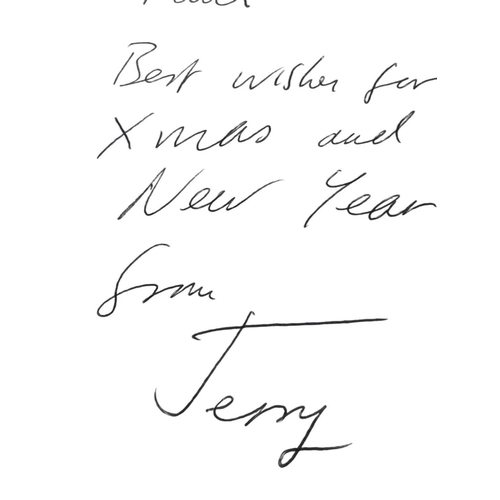 Best wishes for
Xmas and
New Year
from
Jerry